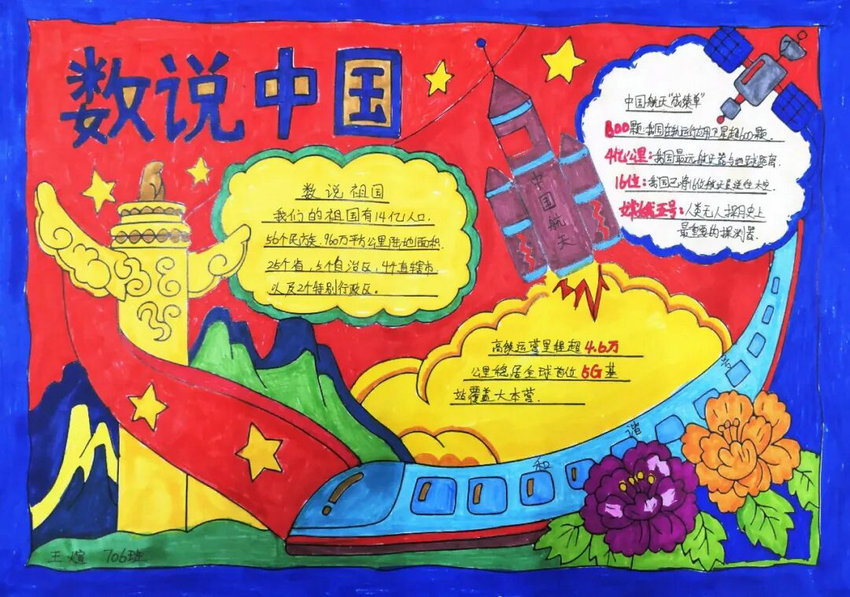 数说中国
数说祖国
我们的祖国有14亿人口.
56个民族.960万平方公里陆地面积.
25个省,5个自治区,4个直辖市
以及2个特别行政区.
中国航天
中国航天"成绩单"
600颗:我国在轨运行的卫星超600颗.
4亿公里:我国最远航天器与地球距离.
16位:我国已将16位航天员送往太空
嫦娥五号:人类无人探月史上
最重要的探测器.
高铁运营里程超4.6万
公里稳居全球首位5G基
站覆盖大本营.
和谐号
王煊 706班